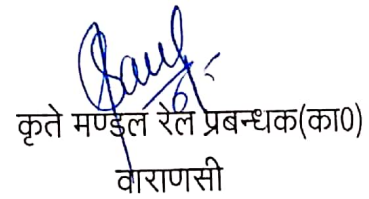 कृते मण्डल रेल प्रबन्धक(का0)
वाराणसी